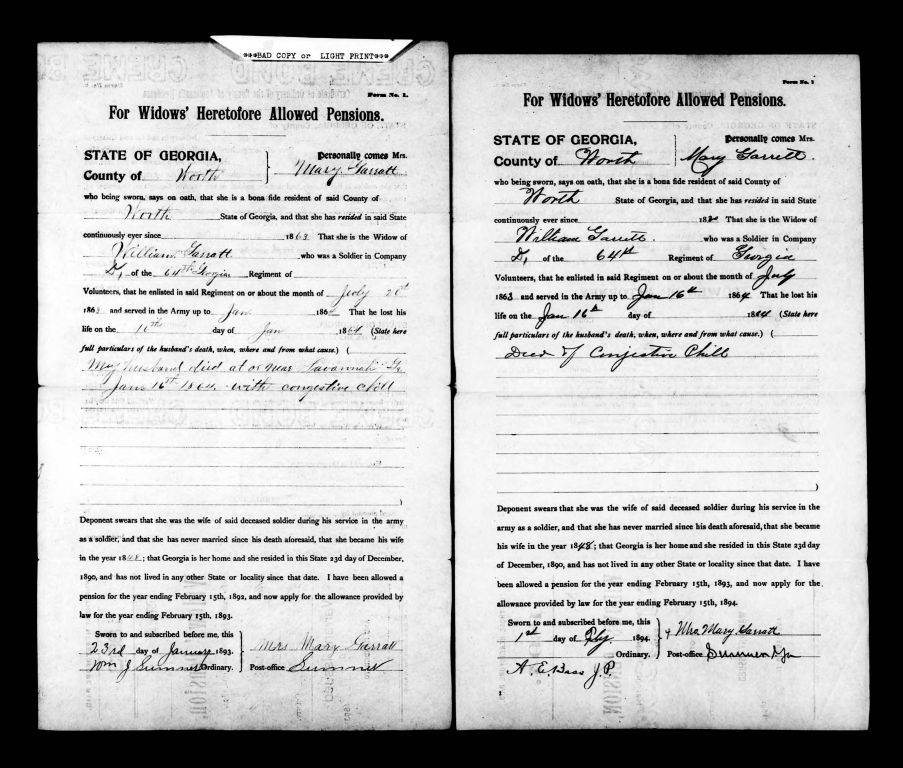 ***BAD COPY or LIGHT PRINT***
Form No. 1.
For Widows' Heretofore Allowed Pensions.
STATE OF GEORGIA, Personally comes Mrs.
County of Worth } Mary Garratt
who being sworn, says on oath, that she is a bona fide resident of said County of
Worth State of Georgia, and that she has resided in said State
continuously ever since 1863 That she is the Widow of
William Garratt who was a Soldier in Company
D, of the 64th Georgia Regiment of
Volunteers, that he enlisted in said Regiment on or about the month of July 20th
1863 and served in the Army up to Jan 1864 That he lost his
life on the 16th day of Jan 1864 (State here
full particulars of the husband's death, when, where and from what cause.) (
My husband died at or near Savannah Ga
Jan 16th 1864 with congestive chill
)
Deponent swears that she was the wife of said deceased soldier during his service in the army
as a soldier, and that she has never married since his death aforesaid, that she became his wife
in the year 1848; that Georgia is her home and she resided in this State 23d day of December,
1890, and has not lived in any other State or locality since that date. I have been allowed a
pension for the year ending February 15th, 1892, and now apply for the allowance provided by
law for the year ending February 15th, 1893.
Sworn to and subscribed before me, this
23rd day of January 1893. } Mrs Mary Garratt
Wm J Sumner Ordinary. Post-office Sumner
Form No. 1
For Widows' Heretofore Allowed Pensions.
STATE OF GEORGIA, Personally comes Mrs.
County of Worth } Mary Garrett.
who being sworn, says on oath, that she is a bona fide resident of said County of
Worth State of Georgia, and that she has resided in said State
continuously ever since That she is the Widow of
William Garrett. who was a Soldier in Company
D, of the 64th Regiment of Georgia
Volunteers, that he enlisted in said Regiment on or about the month of July
1863 and served in the Army up to Jan 16th 1864 That he lost his
life on the Jan 16th day of 1864 (State here
full particulars of the husband's death, when, where and from what cause.) (
Died of Congestive Chill
)
Deponent swears that she was the wife of said deceased soldier during his service in the
army as a soldier, and that she has never married since his death aforesaid, that she became
his wife in the year 1848; that Georgia is her home and she resided in this State 23d day
of December, 1890, and has not lived in any other State or locality since that date. I have
been allowed a pension for the year ending February 15th, 1893, and now apply for the
allowance provided by law for the year ending February 15th, 1894.
Sworn to and subscribed before me, this
1st day of Feby 1894. } Mrs. Mary Garratt
Ordinary. Post-office Sumner Ga
A. E. Bass J.P.